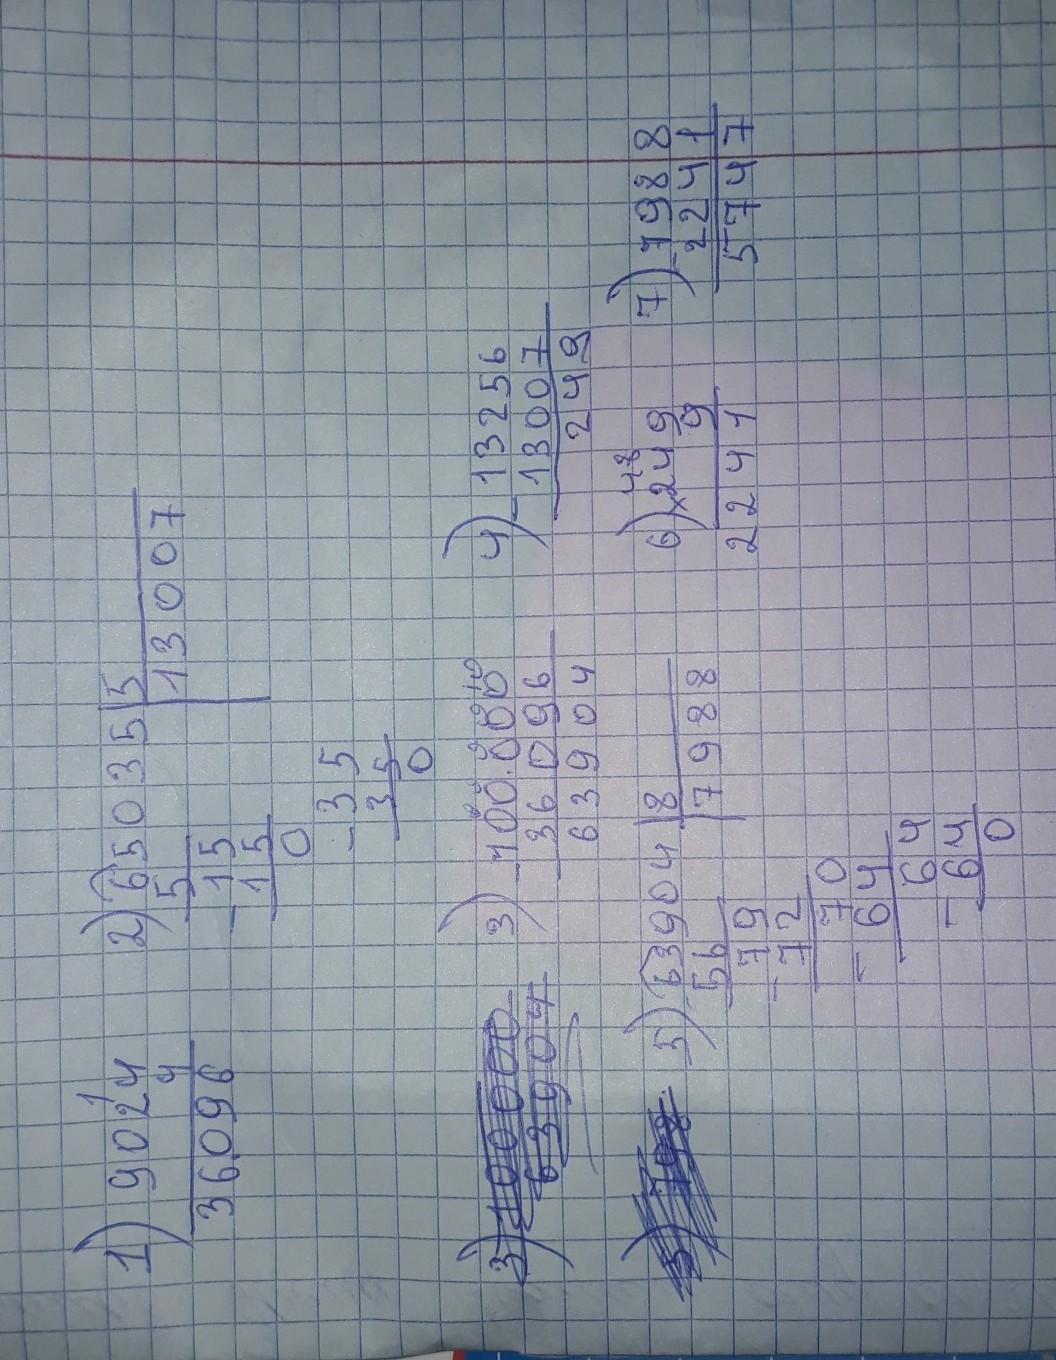 1) 9024
4
36096
2) 65035 | 5
5 | 13007
-15
15
0
-35
35
0
3) - 100.000
36096
63904
4) - 13256
13007
249
5) 63904 | 8
56 | 7988
79
- 72
70
- 64
64
- 64
0
6) x249
9
2241
7) - 7988
2241
5747